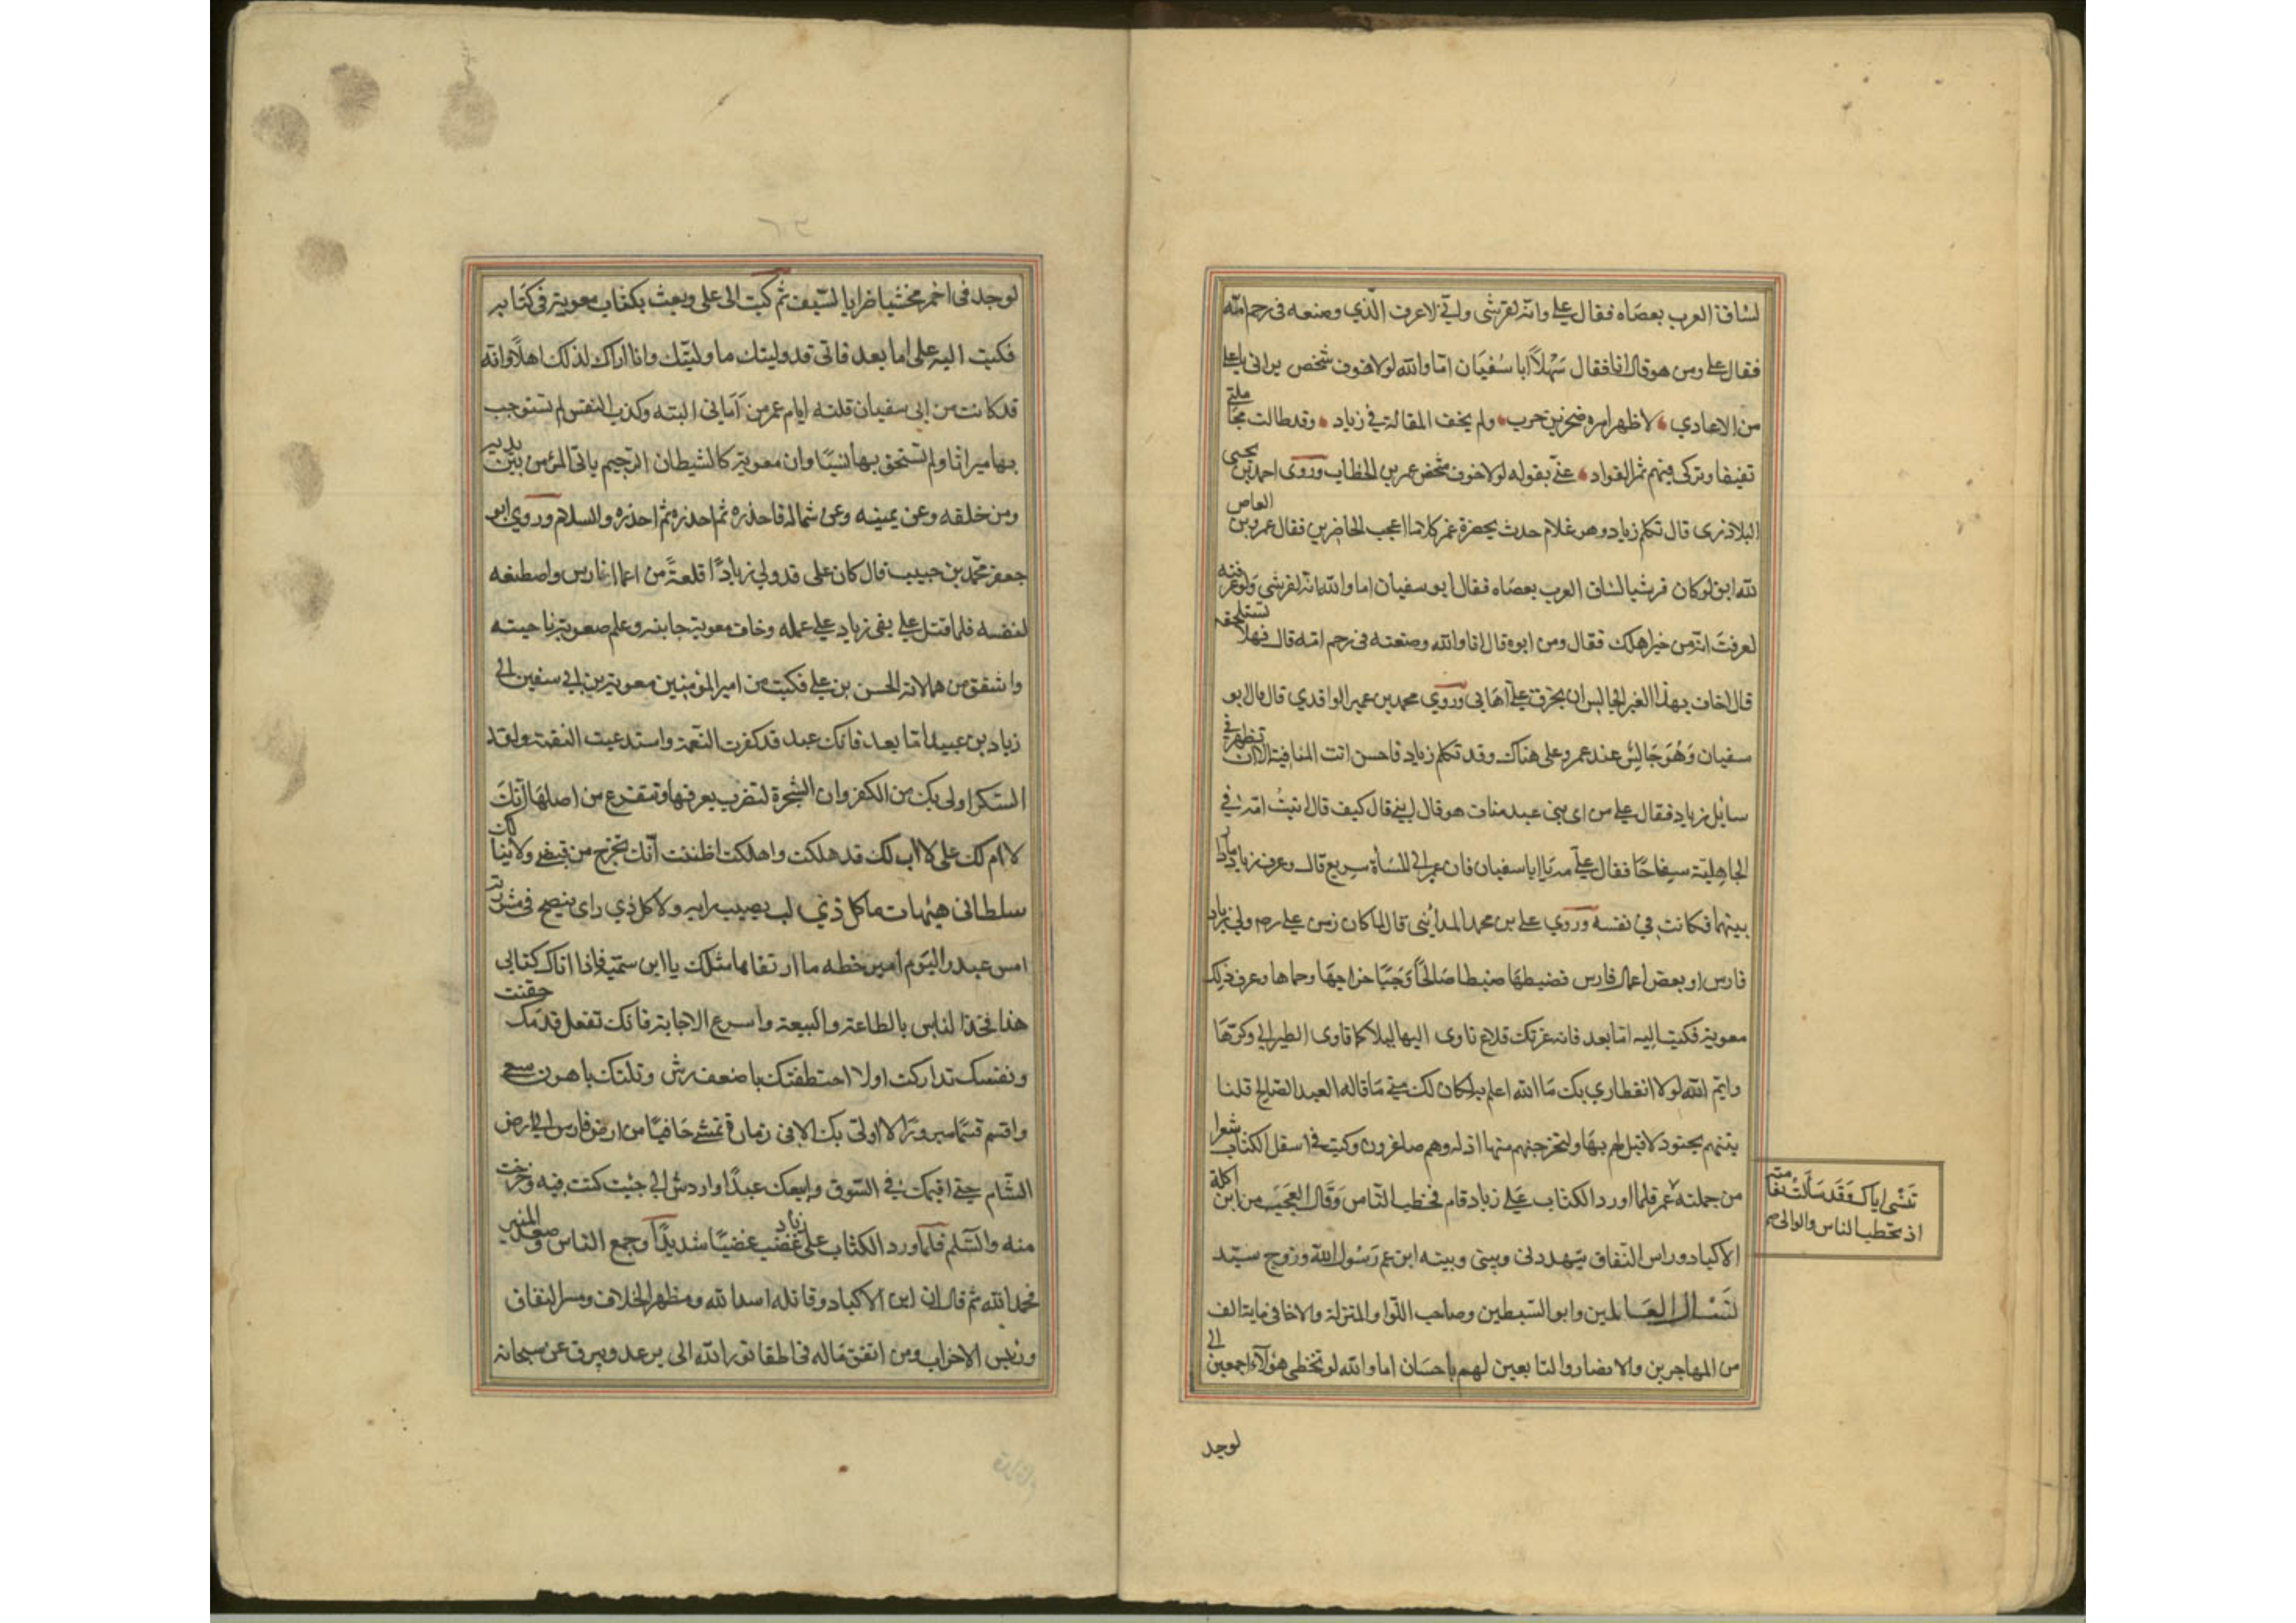 لساق العرب بعصاه فقال علي وانه لقرشي واني لاعرف الذي وضعه في رحم امه
فقال علي ومن هو قال انا فقال مهلا ابا سفيان اما والله لولا خوف شخص يراني يا علي
من الاعادي لاظهر امره صخر بن حرب ولم يخف المقالة في زياد وقد طالت مجاملتي
ثقيفا وتركي فيهم ثمر الفواد عني بقوله لولا خوف شخص عمر بن الخطاب وروى احمد بن يحيى
البلاذري قال تكلم زياد وهو غلام حدث بحضرة عمر كلاما اعجب الحاضرين فقال عمرو بن العاص
لله ابن لو كان قرشيا لساق العرب بعصاه فقال ابو سفيان اما والله انه لقرشي ولو عرفته
لعرفت انه من خير اهلك فقال ومن ابوه قال انا والله وضعته في رحم امه قال فهلا تستلحقه
قال اخاف بهذا العير الجالس ان يخرق علي اهابي وروي محمد بن عمر الواقدي قال قال ابو
سفيان وهو جالس عند عمر وعلي هناك وقد تكلم زياد فاحسن ابت المنافية الا ان تظهر في
سايل زياد فقال علي من اي بني عبد مناف هو قال ابني قال كيف قال اتيت امه في
الجاهلية سفاحا فقال علي مه يا ابا سفيان فان عمر الى المساة سريع قال وعرف زياد ما دار
بينهما فكانت في نفسه وروي علي بن محمد المدائني قال لما كان زمن علي ولي زياد
فارس او بعض اعمال فارس فضبطها ضبطا صالحا وجبا خراجها وحماها وعرف ذلك
معوية فكتب اليه اما بعد فانه غرتك قلاع تاوى اليها ليلا كما تاوى الطير الى وكرها
وايم الله لولا انتظاري بك ما الله اعلم به لكان لك مني ما قاله العبد الصالح فلنا
تينهم بجنود لا قبل لهم بها ولنخرجنهم منها اذلة وهم صاغرون وكتب في اسفل الكتاب شعرا
من جملته تنسى اباك وقد شالت نعامته
اذ يخطب الناس والوالي عمر
فلما اورد الكتاب علي زياد قام فخطب الناس وقال العجب من ابن اكلة
الاكباد وراس النفاق يتهددني وبيني وبينه ابن عم رسول الله وزوج سيدة
نساء العالمين وابو السبطين وصاحب اللوا والمنزلة والاخا في ماية الف
من المهاجرين والانصار والتابعين لهم باحسان اما والله لو تخطى هؤلاء اجمعين الي
لوجد
لوجد في احمر مخشيا ضرابا بالسيف ثم كتب الى علي وبعث بكتاب معوية في كتابه
فكتب اليه علي اما بعد فاني قد وليتك ما وليتك وانا اراك لذلك اهلا وانه
قد كانت من ابي سفيان فلتة ايام عمر من اماني البته وكذب النفس لم تستوجب
بها ميراثا ولم تستحق بها نسبا وان معوية كالشيطان الرجيم ياتي المؤمن من بين يديه
ومن خلفه وعن يمينه وعن شماله فاحذره ثم احذره ثم احذره والسلام وروي ابو
جعفر محمد بن حبيب قال كان علي قد ولي زيادا قلعة من اعمال فارس واصطنعه
لنفسه فلما قتل علي بقى زياد علي عمله وخاف معوية جانبه وعلم صعوبة ناحيته
واشفق من ممالاته الحسن بن علي فكتب من امير المؤمنين معوية بن ابي سفين الى
زياد بن عبيد اما بعد فانك عبد قد كفرت النعمة واستدعيت النقمة ولقد
الشكر اولى بك من الكفر وان الشجرة لتضرب بعرقها وتتفرع من اصلها انك
لا ام لك بل لا اب لك قد هلكت واهلكت اظننت انك تخرج من قبضتي ولا ينالك
سلطاني هيهات ما كل ذي لب يصيب رايه ولا كل ذي راي ينصح في مشورته
امس عبد واليوم امير خطة ما ارتقاها مثلك يا ابن سمية فاذا اتاك كتابي
هذا فخذ الناس بالطاعة والبيعة واسرع الاجابة فانك ان تفعل فدمك حقنت
ونفسك تداركت اولا اختطفتك باضعف ريش ونلتك باهون سعي
واقسم قسما مبرورا لا اوتى بك الا في زمارة تمشي حافيا من ارض فارس الى ارض
الشام حتى اقيمك في السوق وابيعك عبدا واردك الى حيث كنت فيه وخرجت
منه والسلم فلما ورد الكتاب على زياد غضب غضبا شديدا وجمع الناس وصعد المنبر
فحمد الله ثم قال ان ابن الاكباد وقاتلة اسد الله ومظهر الخلاف ومسر النفاق
ورئيس الاحزاب ومن انفق ماله في اطفا نور الله الى يرعد ويبرق عن سحابة